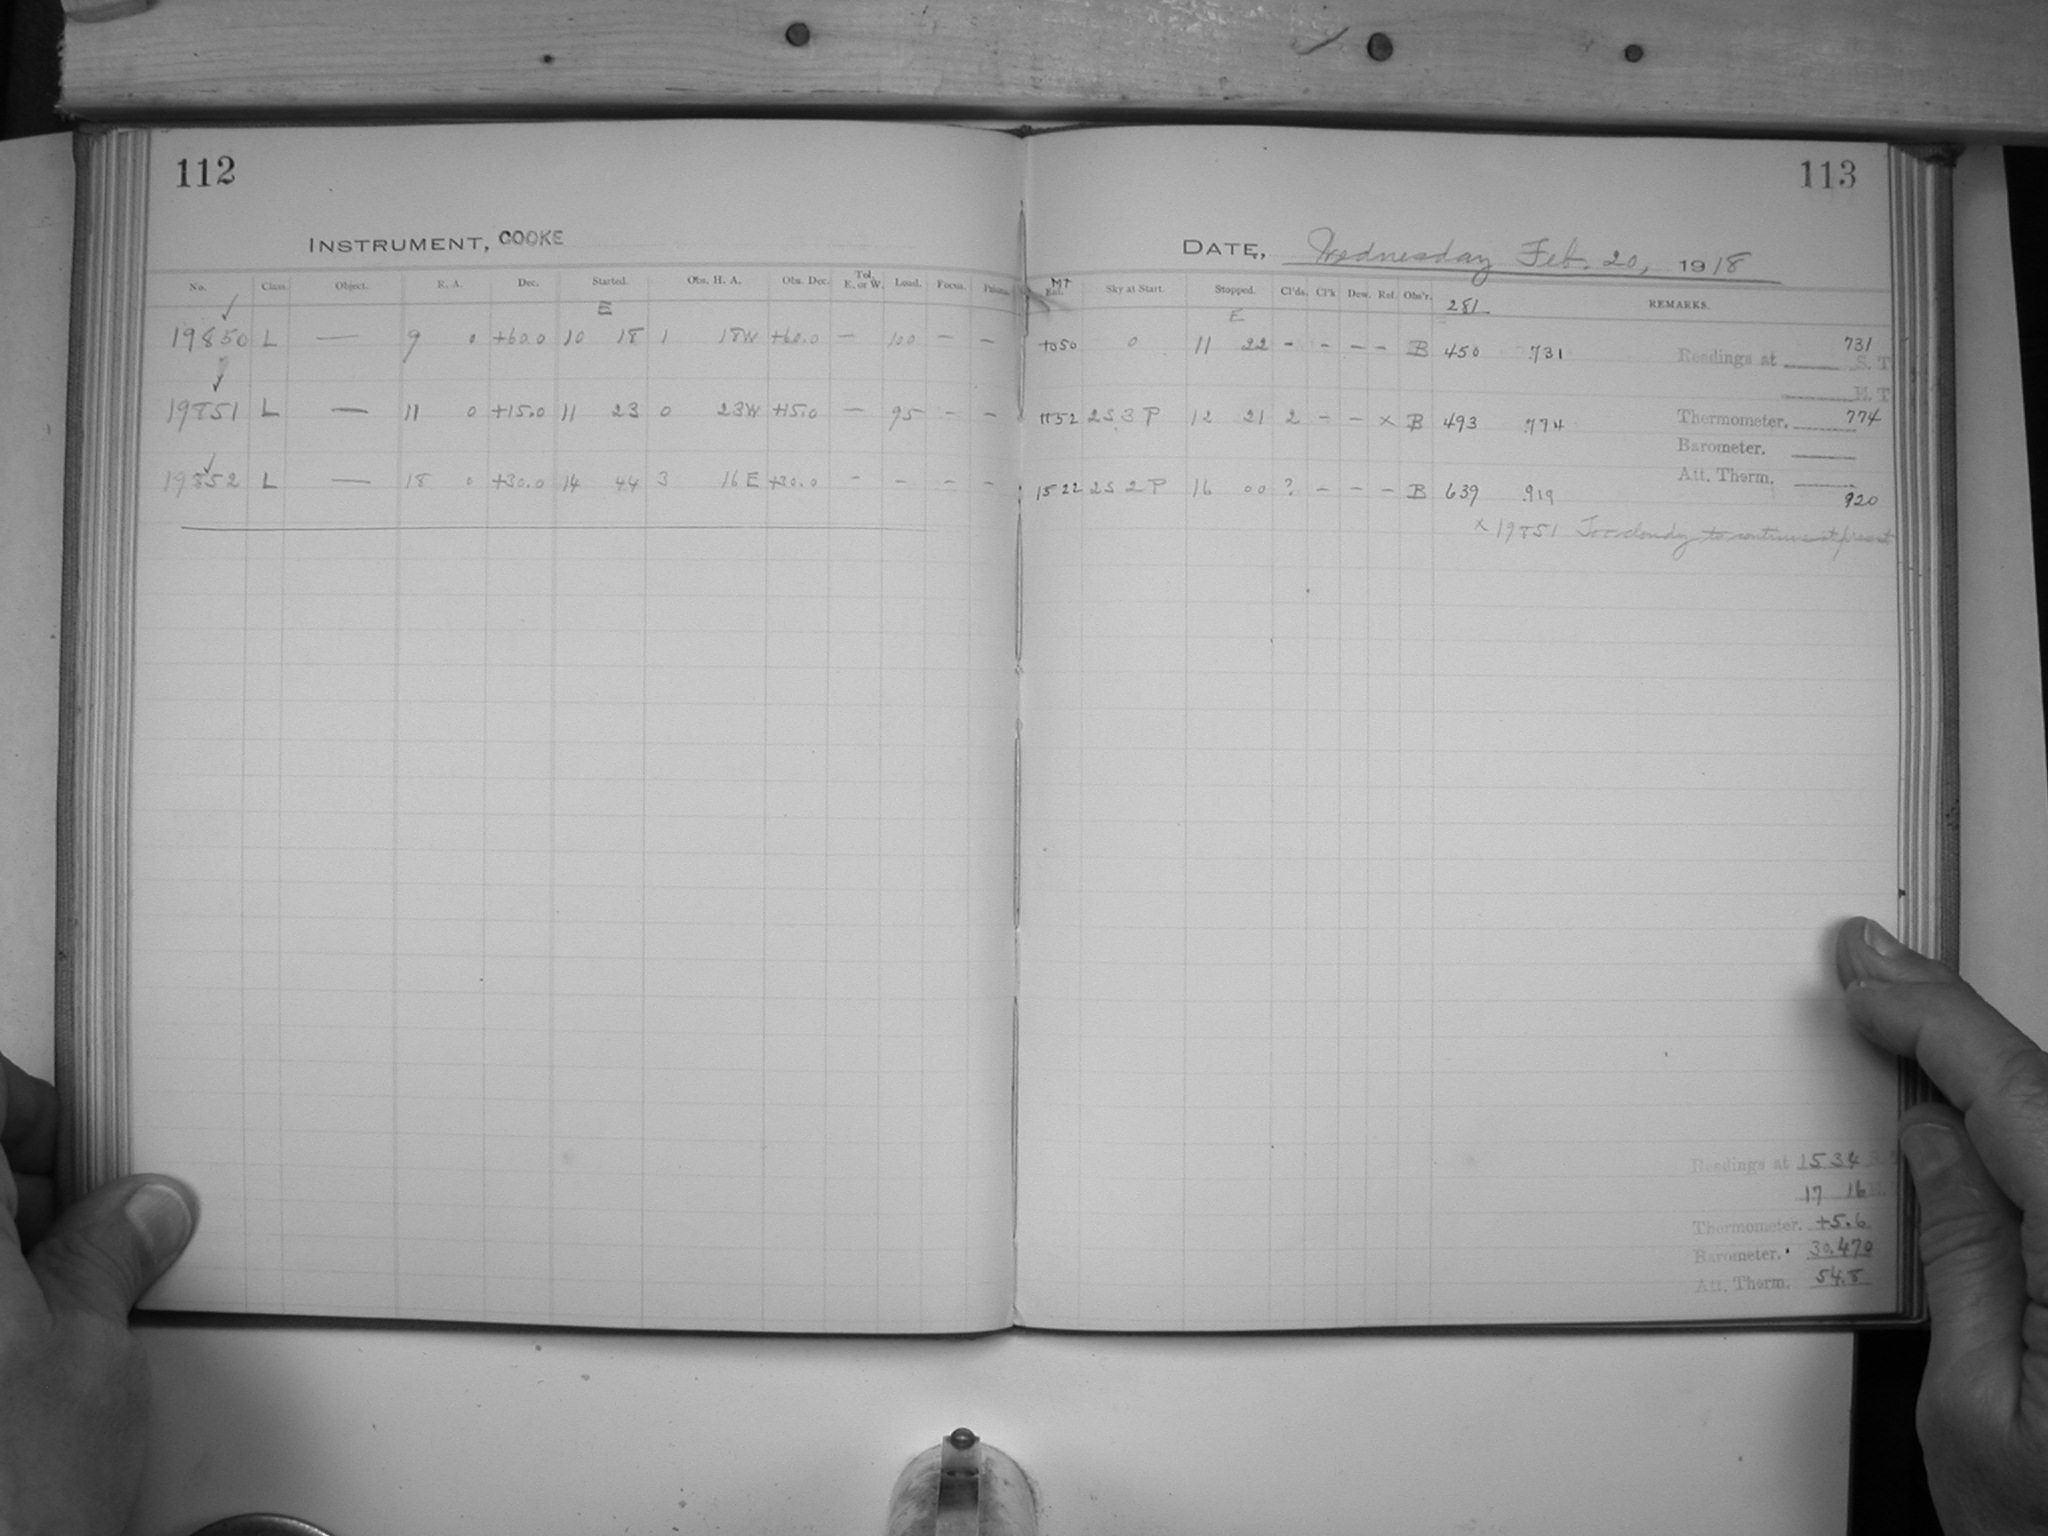 112
INSTRUMENT, COOKE
No. Class. Object. R. A. Dec. Started. Obs. H. A. Obs. Dec. Tel. E. or W. Load. Focus.
E
19850 L — 9 0 +60.0 10 18 1 18W +60.0 — 100 — —
19851 L — 11 0 +15.0 11 23 0 23W +15.0 — 95 — —
19852 L — 18 0 +30.0 14 44 3 16E +30.0 — — — —
113
DATE, Wednesday Feb. 20, 1918
MT Sky at Start. Stopped. Cl'ds. Cl'k Dew. Ref. Obs'r. 281 REMARKS.
E
1050 0 11 22 - - - - B 450 .731 731
Readings at S. T
M. T
1152 2S 3 P 12 21 2 - - x B 493 .774 Thermometer. 774
Barometer.
Att. Therm.
1522 2S 2 P 16 00 ? - - - B 639 .919 920
x 19851 Too cloudy to continue at present
Readings at 15 34
17 16
Thermometer. +5.6
Barometer. 30.470
Att. Therm. 54.8